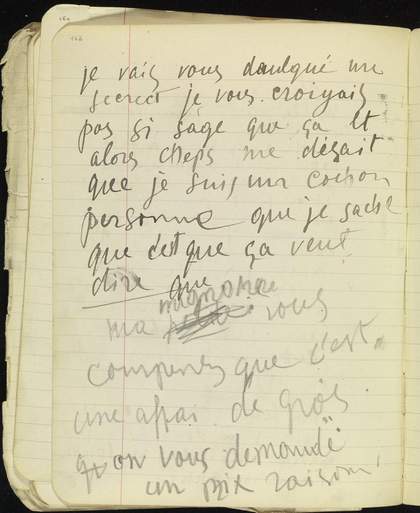 je vais vous daulqué un
secrect je vous croiyais
pas si sage que ça et
alors cheps me désait
que je suis un cochon
personne que je sache
que c'est que ça veut
dire que
mignonne
ma vous
comprenez que c'est
une afrai de gros
qu on vous demande
un prix raison